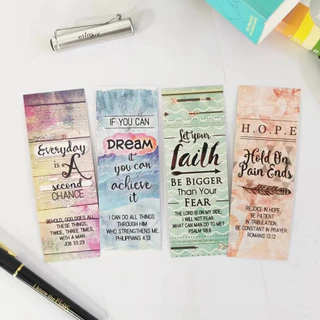 Everyday
is
A
second
CHANCE
BEHOLD, GOD DOES ALL
THESE THINGS,
TWICE, THREE TIMES,
WITH A MAN.
JOB 33:29
IF YOU CAN
DREAM it
you can
achieve
it
I CAN DO ALL THINGS
THROUGH HIM
WHO STRENGTHENS ME
PHILIPPIANS 4:13
Let your
faith
BE BIGGER
Than Your
FEAR
THE LORD IS ON MY SIDE;
I WILL NOT FEAR.
WHAT CAN MAN DO TO ME?
PSALM 118:6
H.O.P.E
Hold On
Pain Ends
REJOICE IN HOPE,
BE PATIENT
IN TRIBULATION,
BE CONSTANT IN PRAYER.
ROMANS 12:12